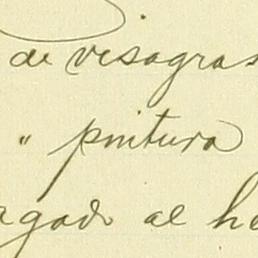 de visagras
" pintura
rgado al he